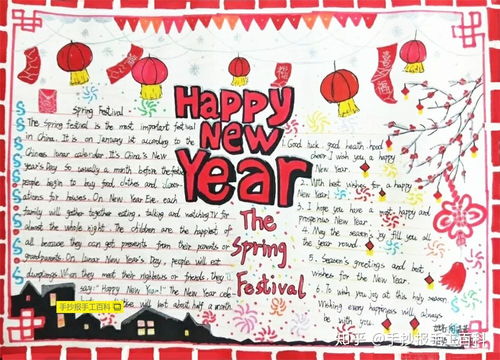 Happy
New
Year
The
Spring
Festival
Spring Festival
The Spring Festival is the most important festival
in China. It is on January 1st according to the
Chinese lunar calendar. It's China's New
Year's Day. So usually a month before the festival
people begin to buy food, clothes and
for houses. On New Year Eve, each
family will gather together eating, talking and watching TV for
almost the whole night. The children are the happiest of
all because they can get presents from their parents or
grandparents. On lunar New Year's Day, people will eat
dumplings. When they meet their or friends, they'll
say: "Happy New Year!" The New Year
will last about half a month
1. Good luck, good health, hood
cheer. I wish you a happy
New Year.
2. With best wishes for a happy
New Year!
3. I hope you have a most happy and
prosperous New Year.
4. May the season's joy fill you all
the year round.
5. Season's greetings and best
wishes for the New Year.
6. To wish you joy at this holy season.
Wishing every happiness will always
be with you.
手抄报手工百科
知乎 @手抄报手工百科